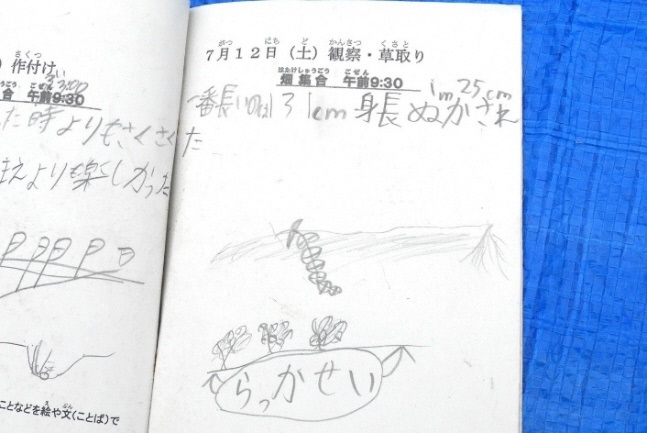 さくつ
）作付け
3:00
合 午前9:30
た時よりもさくさく
まえよりも楽しかった
え ぶん
ことなどを絵や文（ことば）で
がつ にち ど かんさつ くさと
7月12日（土）観察・草取り
はたけしゅうごう ごぜん
畑集合 午前9:30
1m25cm
一番長いのは131cm 身長ぬかされ
た
らっかせい